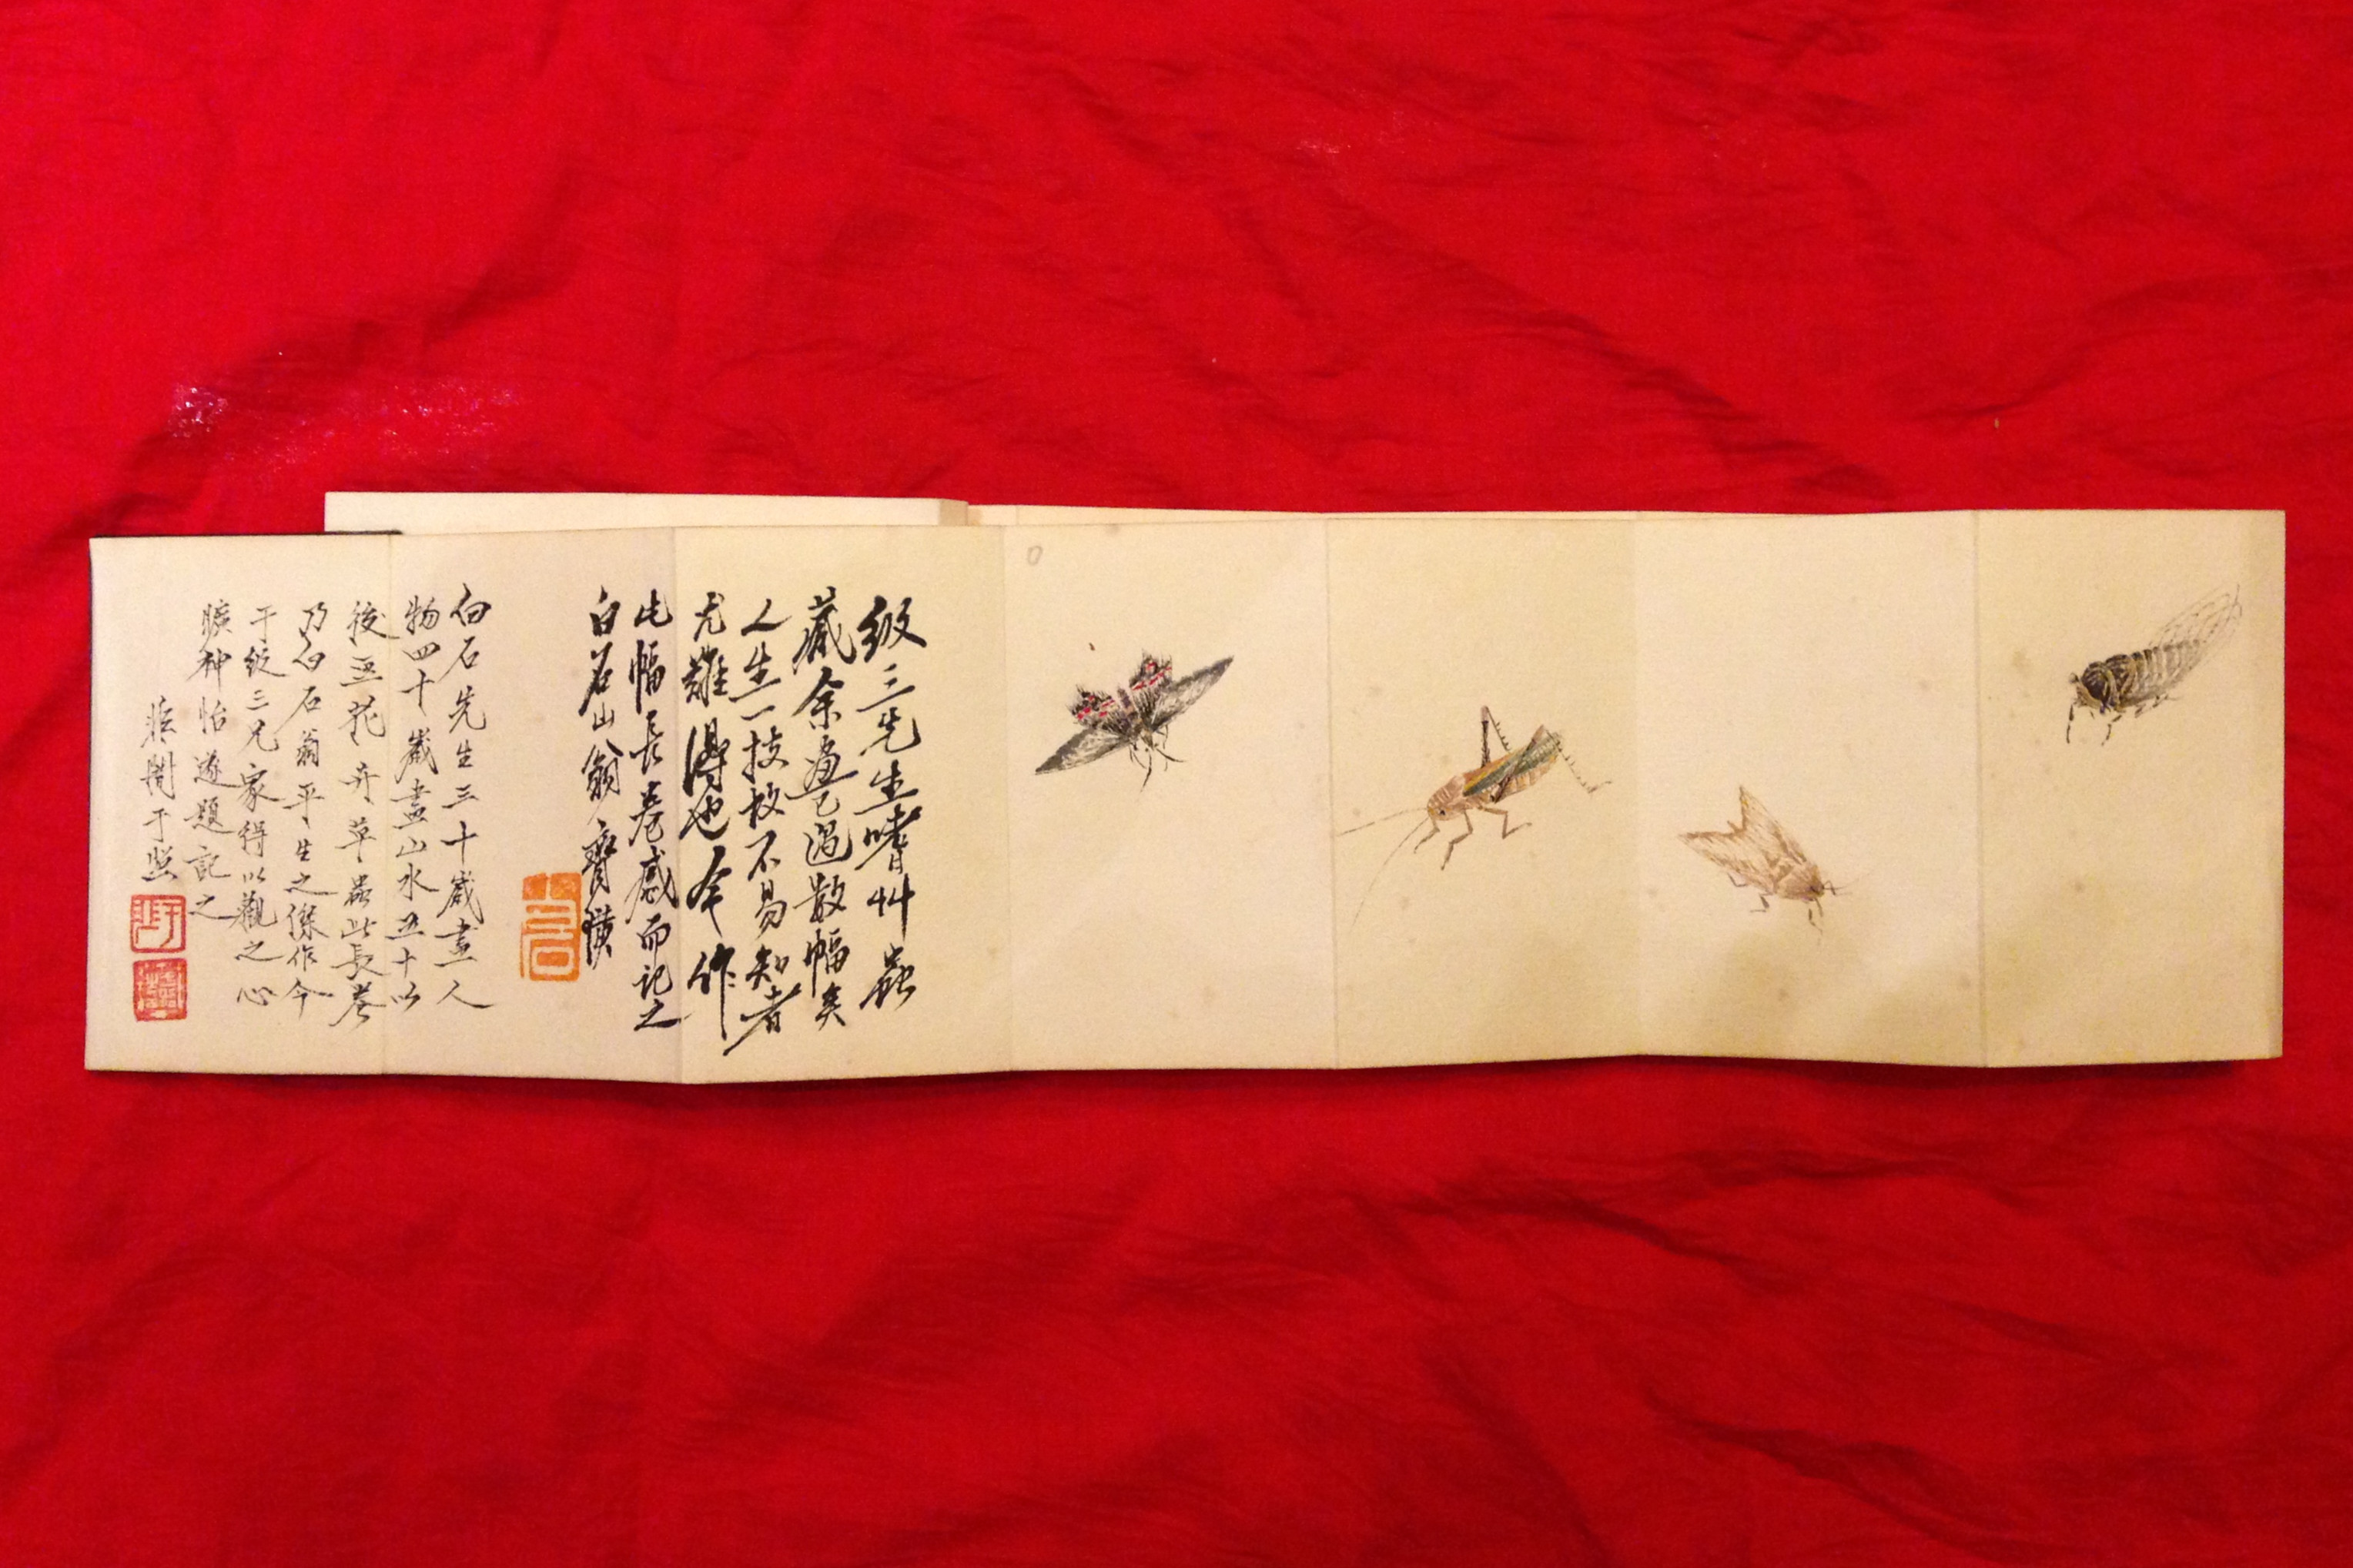 级三先生嗜艸蟲
藏余畫已過數幅矣
人生一技故不易知者
尤難得也今作
此幅長卷感而記之
白石山翁齊璜
白石先生三十歲畫人
物四十歲畫山水五十以
後並花卉草蟲此長卷
乃白石翁平生之傑作今
于级三兄家得以觀之心
曠神怡遂題記之
非闇于照